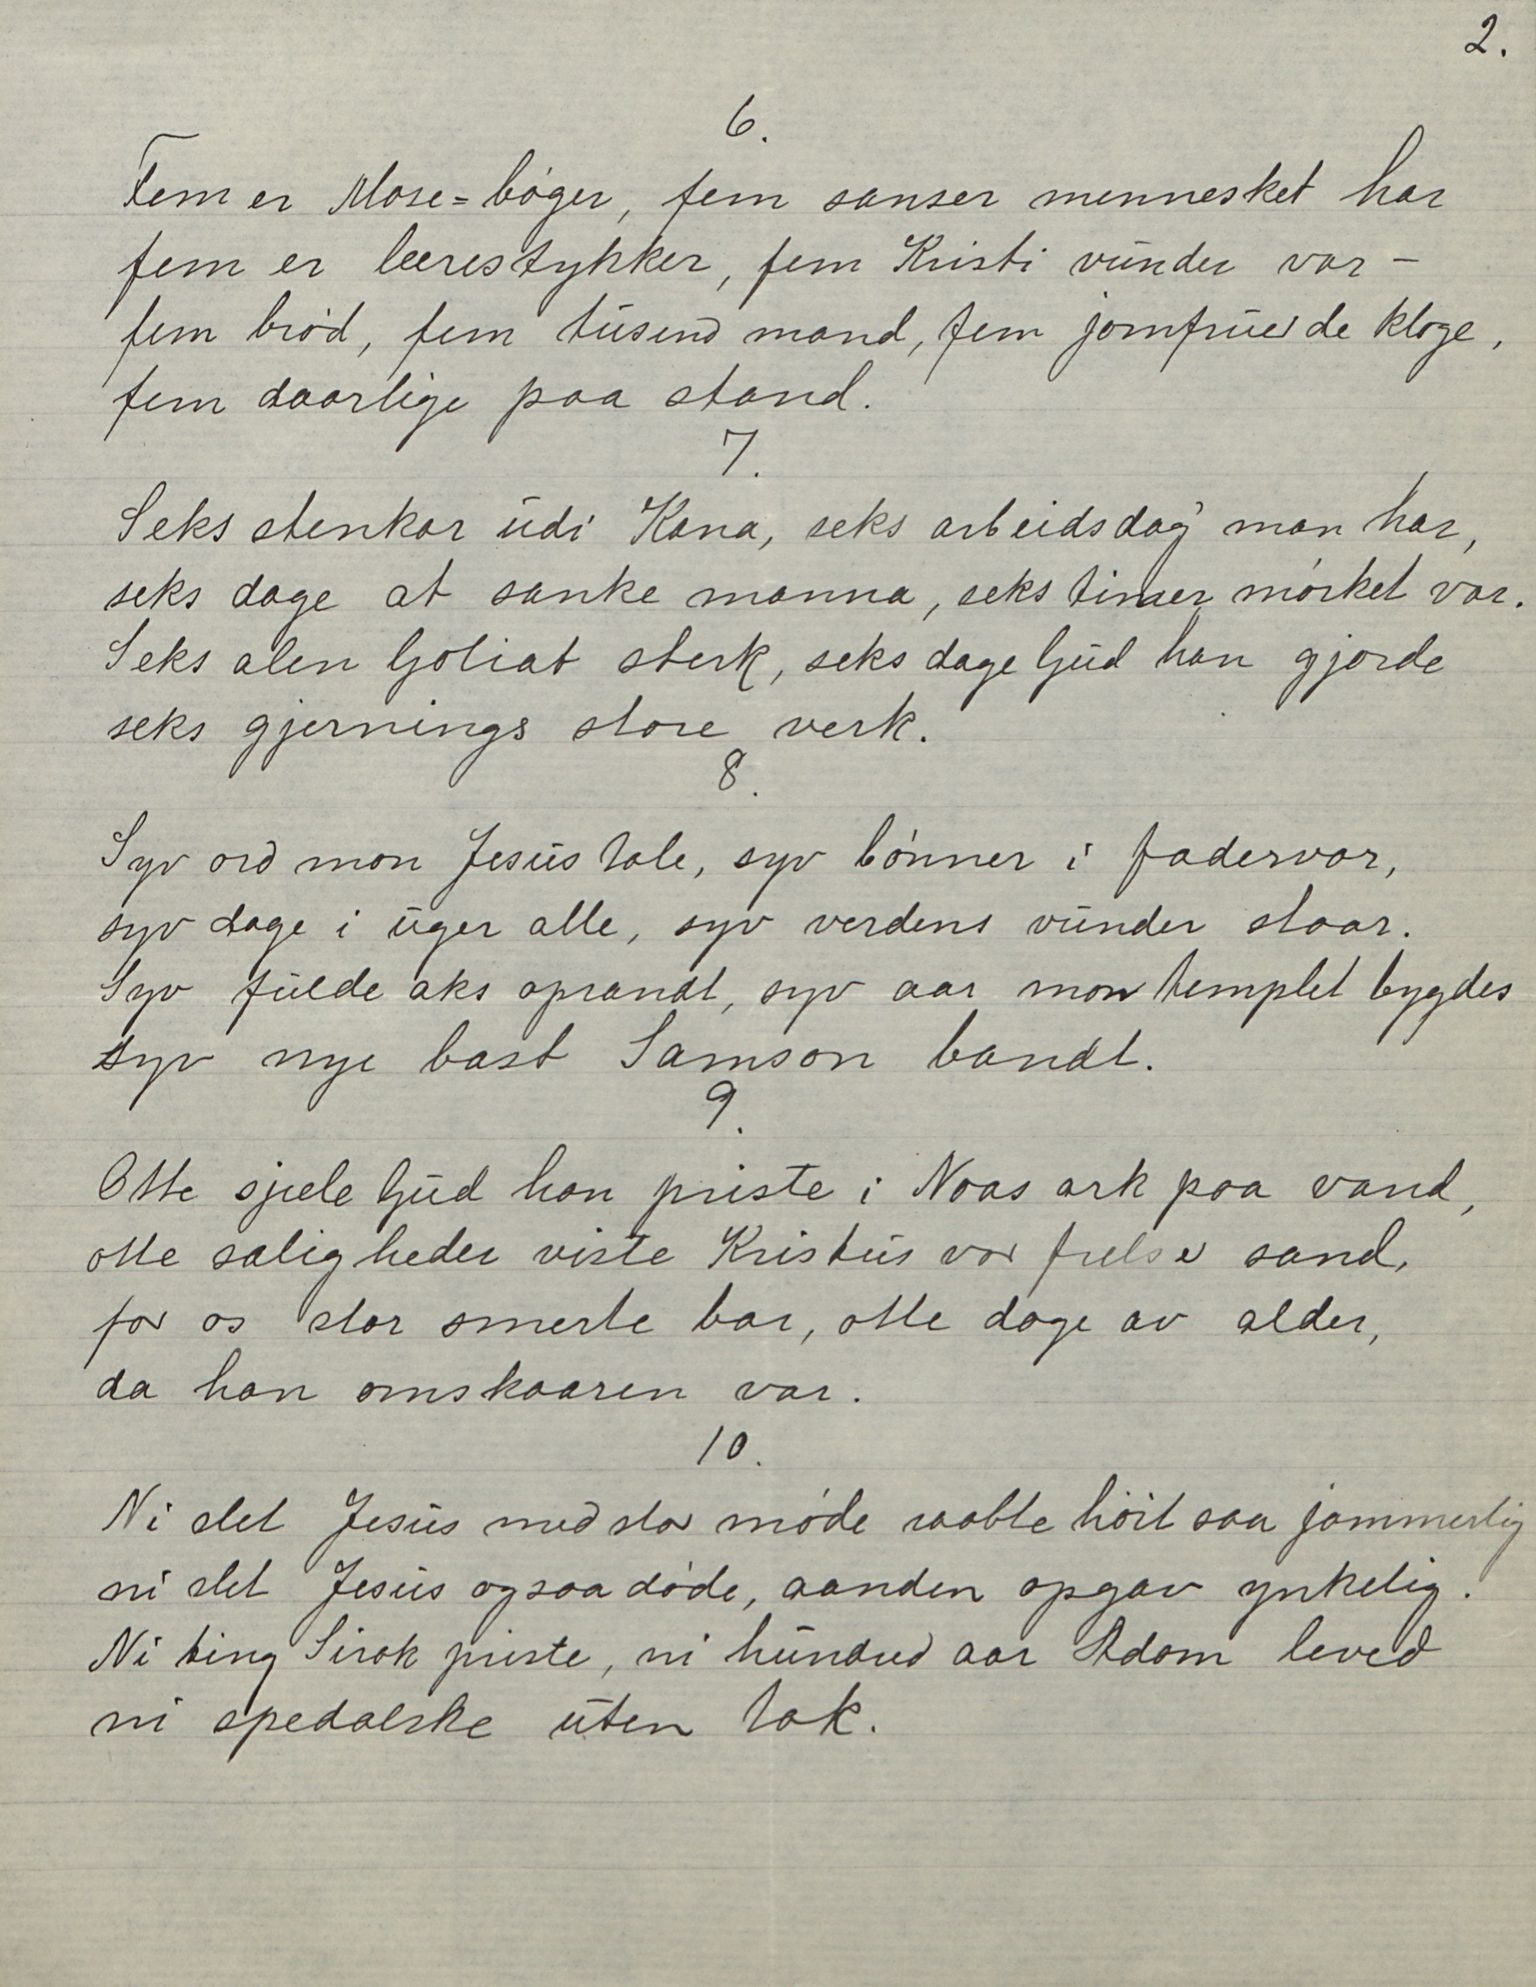 2.
6.
Fem er Mose=bøger, fem sanser mennesket har
fem er lærestykker, fem Kristi vunder var –
fem brød, fem tusend mand, fem jomfruer de kloge,
fem daarlige paa stand.
7.
Seks stenkar udi Kana, seks arbeidsdag man har,
seks dage at sanke manna, seks timer mørket var.
Seks alen Goliat sterk, seks dage Gud han gjorde
seks gjernings store verk.
8.
Syv ord mon Jesus tale, syv bønner i fadervor,
syv dage i uger alle, syv verdens vunder staar.
Syv fulde aks oprandt, syv aar mon templet bygdes
syv nye bast Samson bandt.
9.
Otte sjæle Gud han priste i Noas ark paa vand,
otte saligheder viste Kristus vor frelser sand,
for os stor smerte bar, otte dage av alder,
da han omskaaren var.
10.
Ni slet Jesus med stor møde raabte høit saa jammerlig
ni slet Jesus ogsaa døde, aanden opgav ynkelig.
Ni ting Sirak priste, ni hundred aar Adam leved
ni spedalske uten tak.